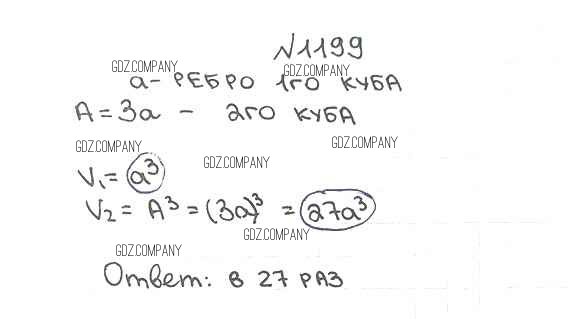 №1199
GDZ.COMPANY GDZ.COMPANY
a - РЕБРО 1ГО КУБА
A = 3a - 2ГО КУБА
GDZ.COMPANY GDZ.COMPANY
GDZ.COMPANY
V₁ = a³
V₂ = A³ = (3a)³ = 27a³
GDZ.COMPANY
GDZ.COMPANY
Ответ: в 27 РАЗ